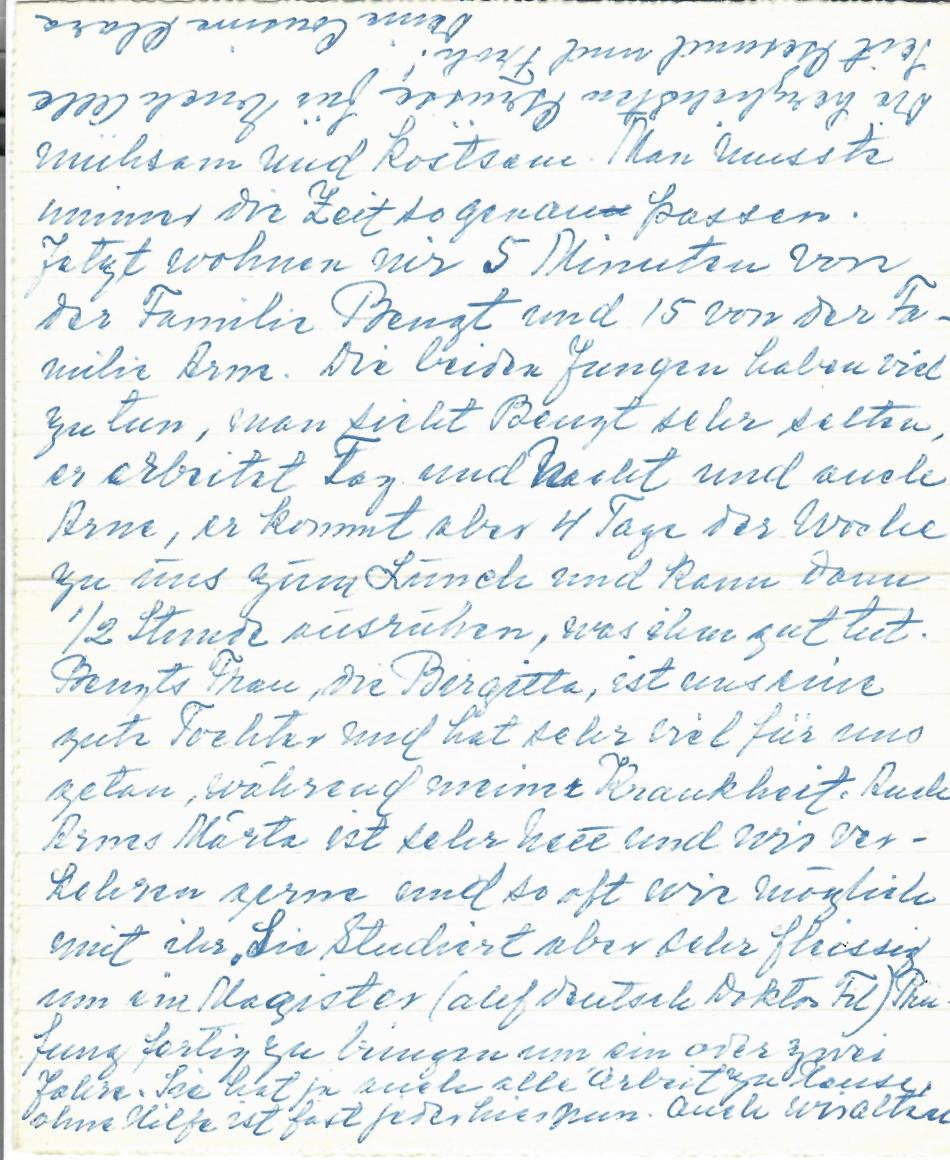 mühsam und kostsam. Man musste
immer die Zeit so genau passen.
Jetzt wohnen wir 5 Minuten von
der Familie Bengt und 15 von der Fa-
milie Arne. Die beiden Jungen haben viel
zu tun, man sieht Bengt sehr selten,
er arbeitet Tag und Nacht und auch
Arne, er kommt aber 4 Tage der Woche
zu uns zum Lunch und kann dann
1/2 Stunde ausruhen, was ihm gut tut.
Bengts Frau, die Birgitta, ist uns eine
gute Tochter und hat sehr viel für uns
getan, während meine Krankheit. Auch
Arnes Märta ist sehr nett und wir ver-
kehren gerne und so oft wie möglich
mit ihr. Sie studiert aber sehr fleissig
um ein Magister (auf deutsch Doktor Fil) Prü
fung fertig zu bringen um ein oder zwei
Jahre. Sie hat ja auch alle Arbeit zu Hause,
ohne Hilfe ist fast jeder hier nun. Auch wir alten
Die herzlichsten Grüsse für Euch Alle
Seit Gesund und Froh!
Deine Cousine Clara